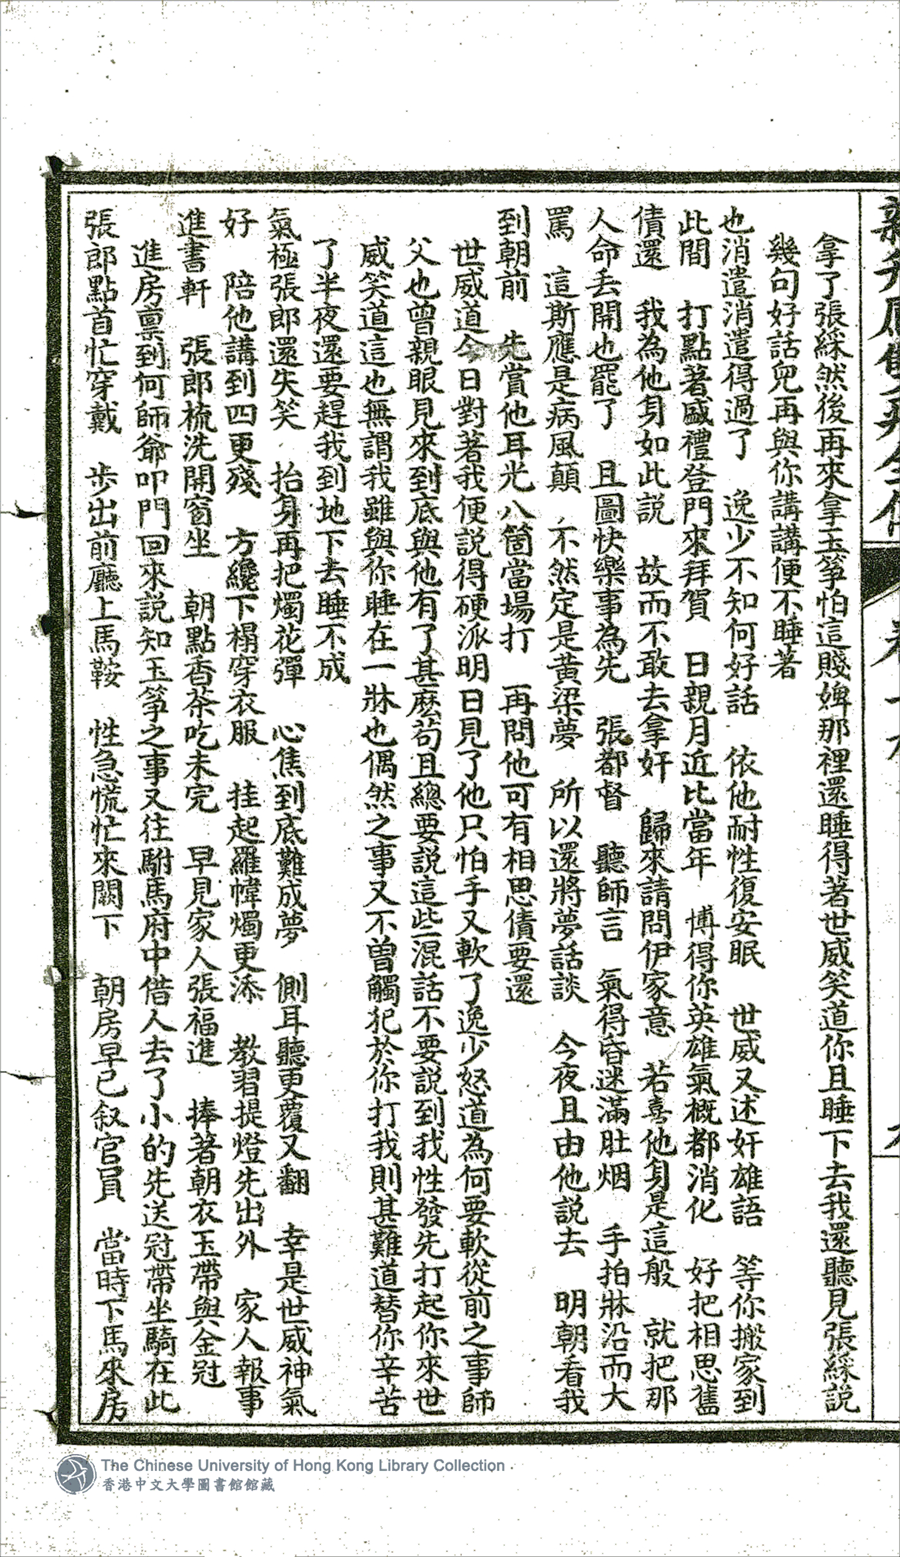 拿了張綵然後再來拿玉箏怕這賤婢那裡還睡得著世威笑道你且睡下去我還聽見張綵說
幾句好話兒再與你講講便不睡著
也消遣消遣得過了　逸少不知何好話　依他耐性復安眠　世威又述奸雄語　等你搬家到
此間　打點著盛禮登門來拜賀　日親月近比當年　博得你英雄氣概都消化　好把相思舊
債還　我為他身如此說　故而不敢去拿奸　歸來請問伊家意　若喜他身是這般　就把那
人命丟開也罷了　且圖快樂事為先　張都督　聽師言　氣得昏迷滿肚烟　手拍牀沿而大
罵　這斯應是病風顛　不然定是黃梁夢　所以還將夢話談　今夜且由他說去　明朝看我
到朝前　先賞他耳光八箇當場打　再問他可有相思債要還
世威道今日對著我便說得硬派明日見了他只怕手又軟了逸少怒道為何要軟從前之事師
父也曾親眼見來到底與他有了甚麼苟且總要說這些混話不要說到我性發先打起你來世
威笑道這也無謂我雖與你睡在一牀也偶然之事又不曾觸犯於你打我則甚難道替你辛苦
了半夜還要趕我到地下去睡不成
氣極張郎還失笑　抬身再把燭花彈　心焦到底難成夢　側耳聽更覆又翻　幸是世威神氣
好　陪他講到四更殘　方纔下榻穿衣服　挂起羅幃燭更添　教習提燈先出外　家人報事
進書軒　張郎梳洗開窗坐　朝點香茶吃未完　早見家人張福進　捧著朝衣玉帶與金冠
進房稟到何師爺叩門回來說知玉箏之事又往駙馬府中借人去了小的先送冠帶坐騎在此
張郎點首忙穿戴　步出前廳上馬鞍　性急慌忙來闕下　朝房早已叙官員　當時下馬來房
The Chinese University of Hong Kong Library Collection
香港中文大學圖書館館藏